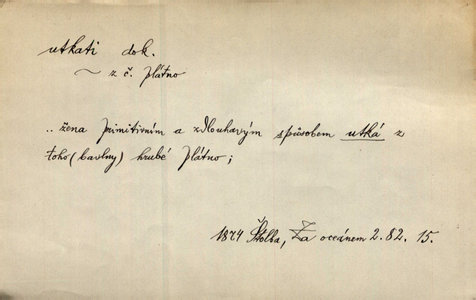 utkati dok.
~ z č. plátno
.. žena primitivním a zdlouhavým spůsobem utká z
toho (bavlny) hrubé plátno;
1874 Štolba, Za oceánem 2. 82. 15.